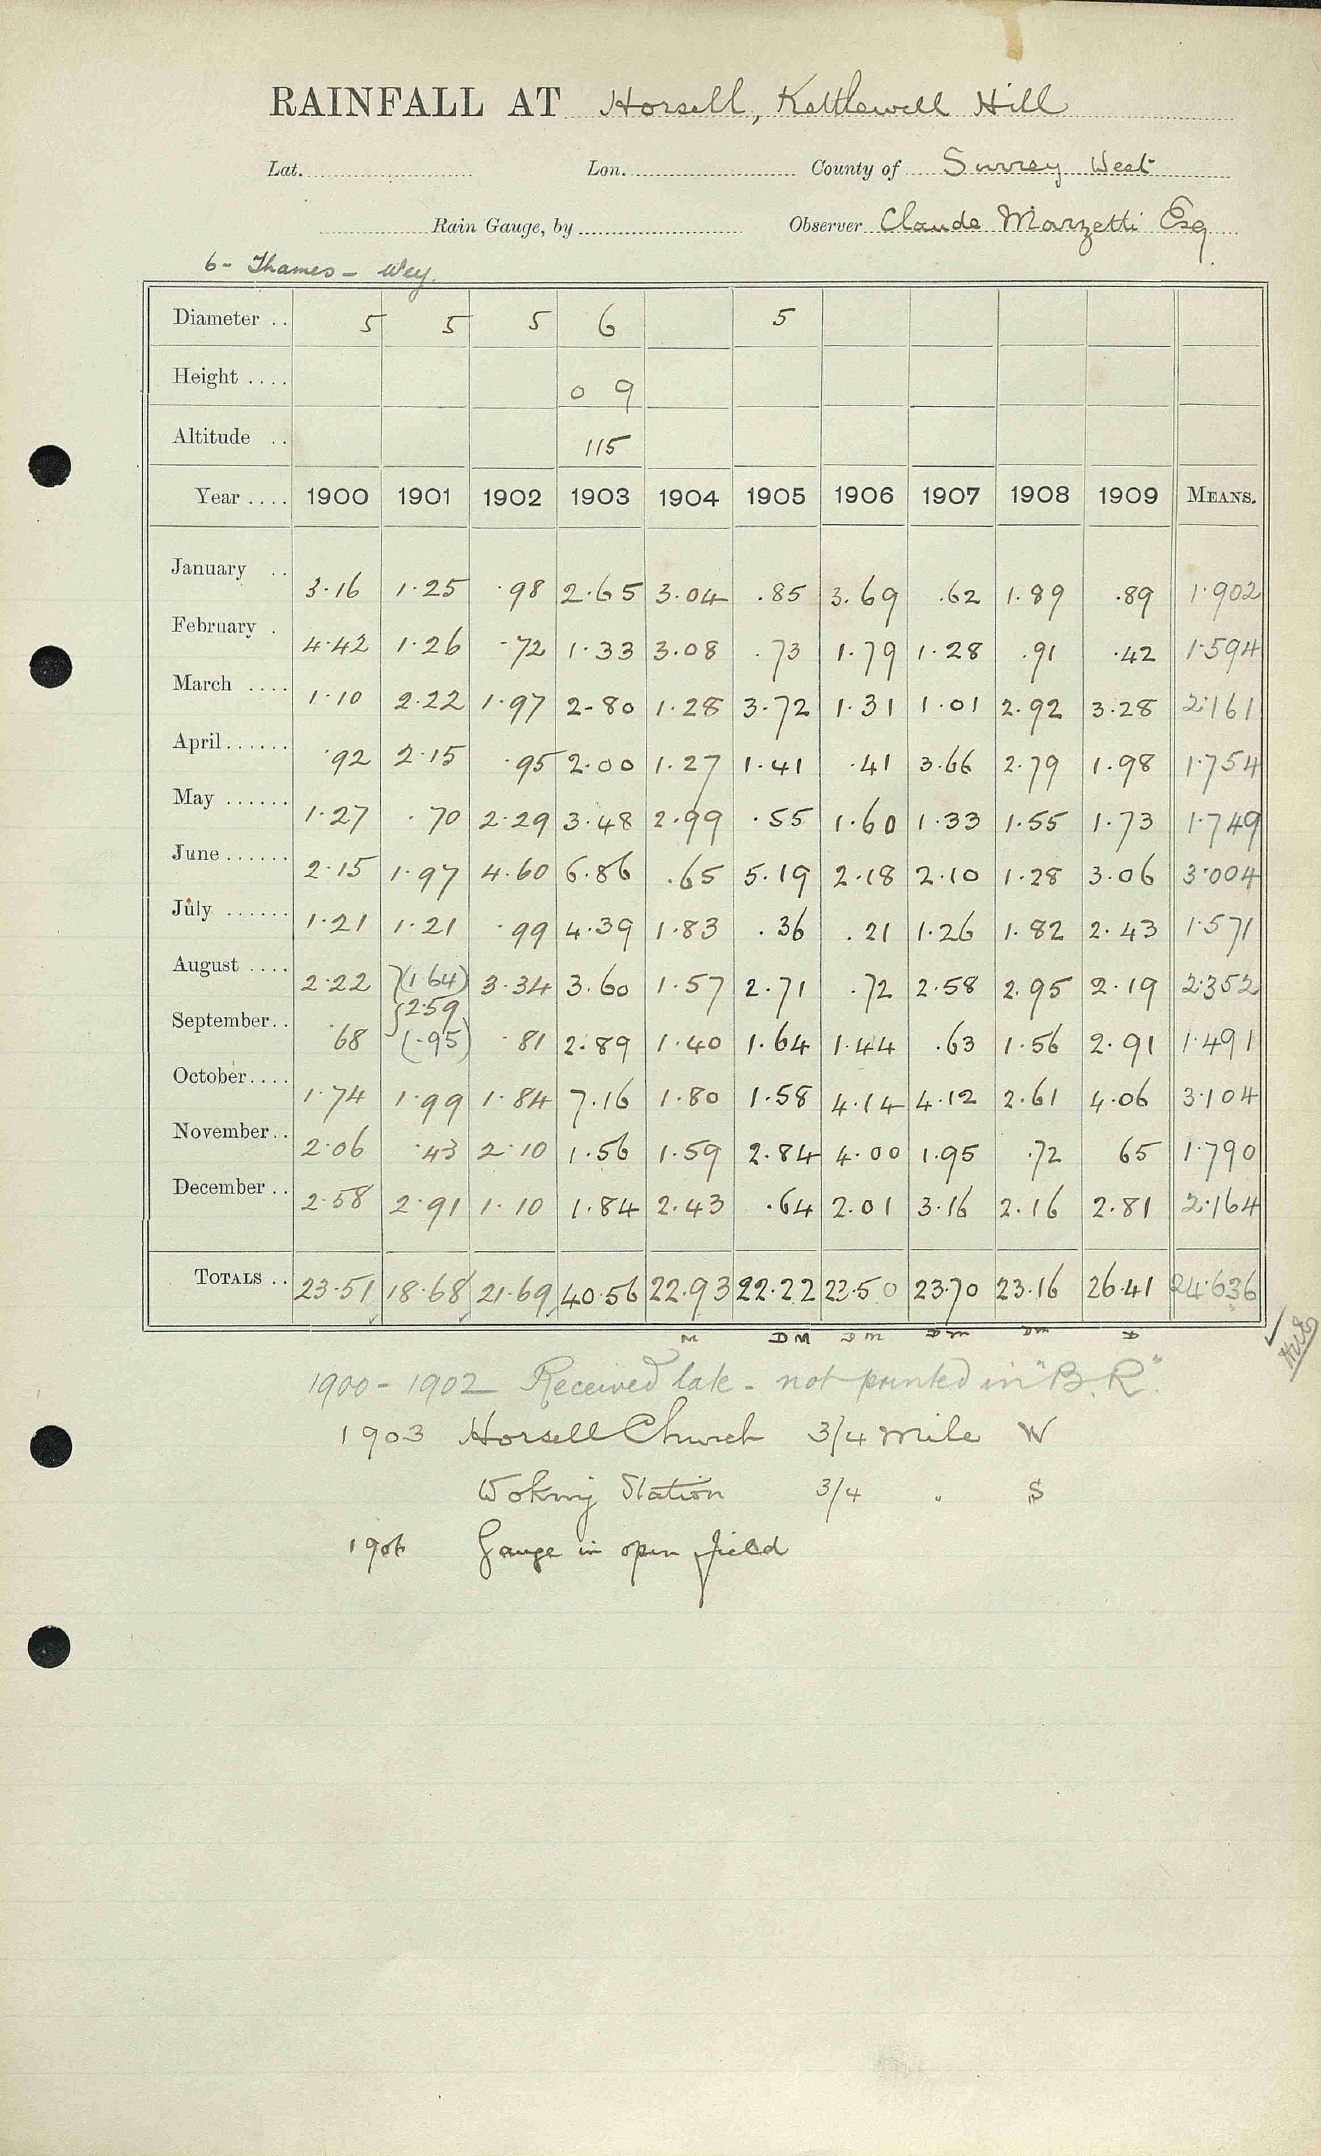 RAINFALL AT Horsell, Kettlewell Hill
Lat. Lon. County of Surrey West
Rain Gauge, by Observer Claude Marzetti Esq
6- Thames - Wey
Diameter .. 5 5 5 6 5
Height .... 0 9
Altitude .. 115
Year .... 1900 1901 1902 1903 1904 1905 1906 1907 1908 1909 MEANS.
January .. 3.16 1.25 .98 2.65 3.04 .85 3.69 .62 1.89 .89 1.902
February . 4.42 1.26 .72 1.33 3.08 .73 1.79 1.28 .91 .42 1.594
March .... 1.10 2.22 1.97 2.80 1.28 3.72 1.31 1.01 2.92 3.28 2.161
April ...... .92 2.15 .95 2.00 1.27 1.41 .41 3.66 2.79 1.98 1.754
May ...... 1.27 .70 2.29 3.48 2.99 .55 1.60 1.33 1.55 1.73 1.749
June ...... 2.15 1.97 4.60 6.86 .65 5.19 2.18 2.10 1.28 3.06 3.004
July ...... 1.21 1.21 .99 4.39 1.83 .36 .21 1.26 1.82 2.43 1.571
August .... 2.22 (1.64) 3.34 3.60 1.57 2.71 .72 2.58 2.95 2.19 2.352
2.59
September.. .68 (.95) .81 2.89 1.40 1.64 1.44 .63 1.56 2.91 1.491
October.... 1.74 1.99 1.84 7.16 1.80 1.58 4.14 4.12 2.61 4.06 3.104
November.. 2.06 .43 2.10 1.56 1.59 2.84 4.00 1.95 .72 65 1.790
December .. 2.58 2.91 1.10 1.84 2.43 .64 2.01 3.16 2.16 2.81 2.164
TOTALS .. 23.51 18.68 21.69 40.56 22.93 22.22 23.50 23.70 23.16 26.41 24.636
M DM DM DM DM D
1900 - 1902 Received late - not printed in "B.R."
1903 Horsell Church 3/4 mile W
Woking Station 3/4 " S
1906 Gauge in open field